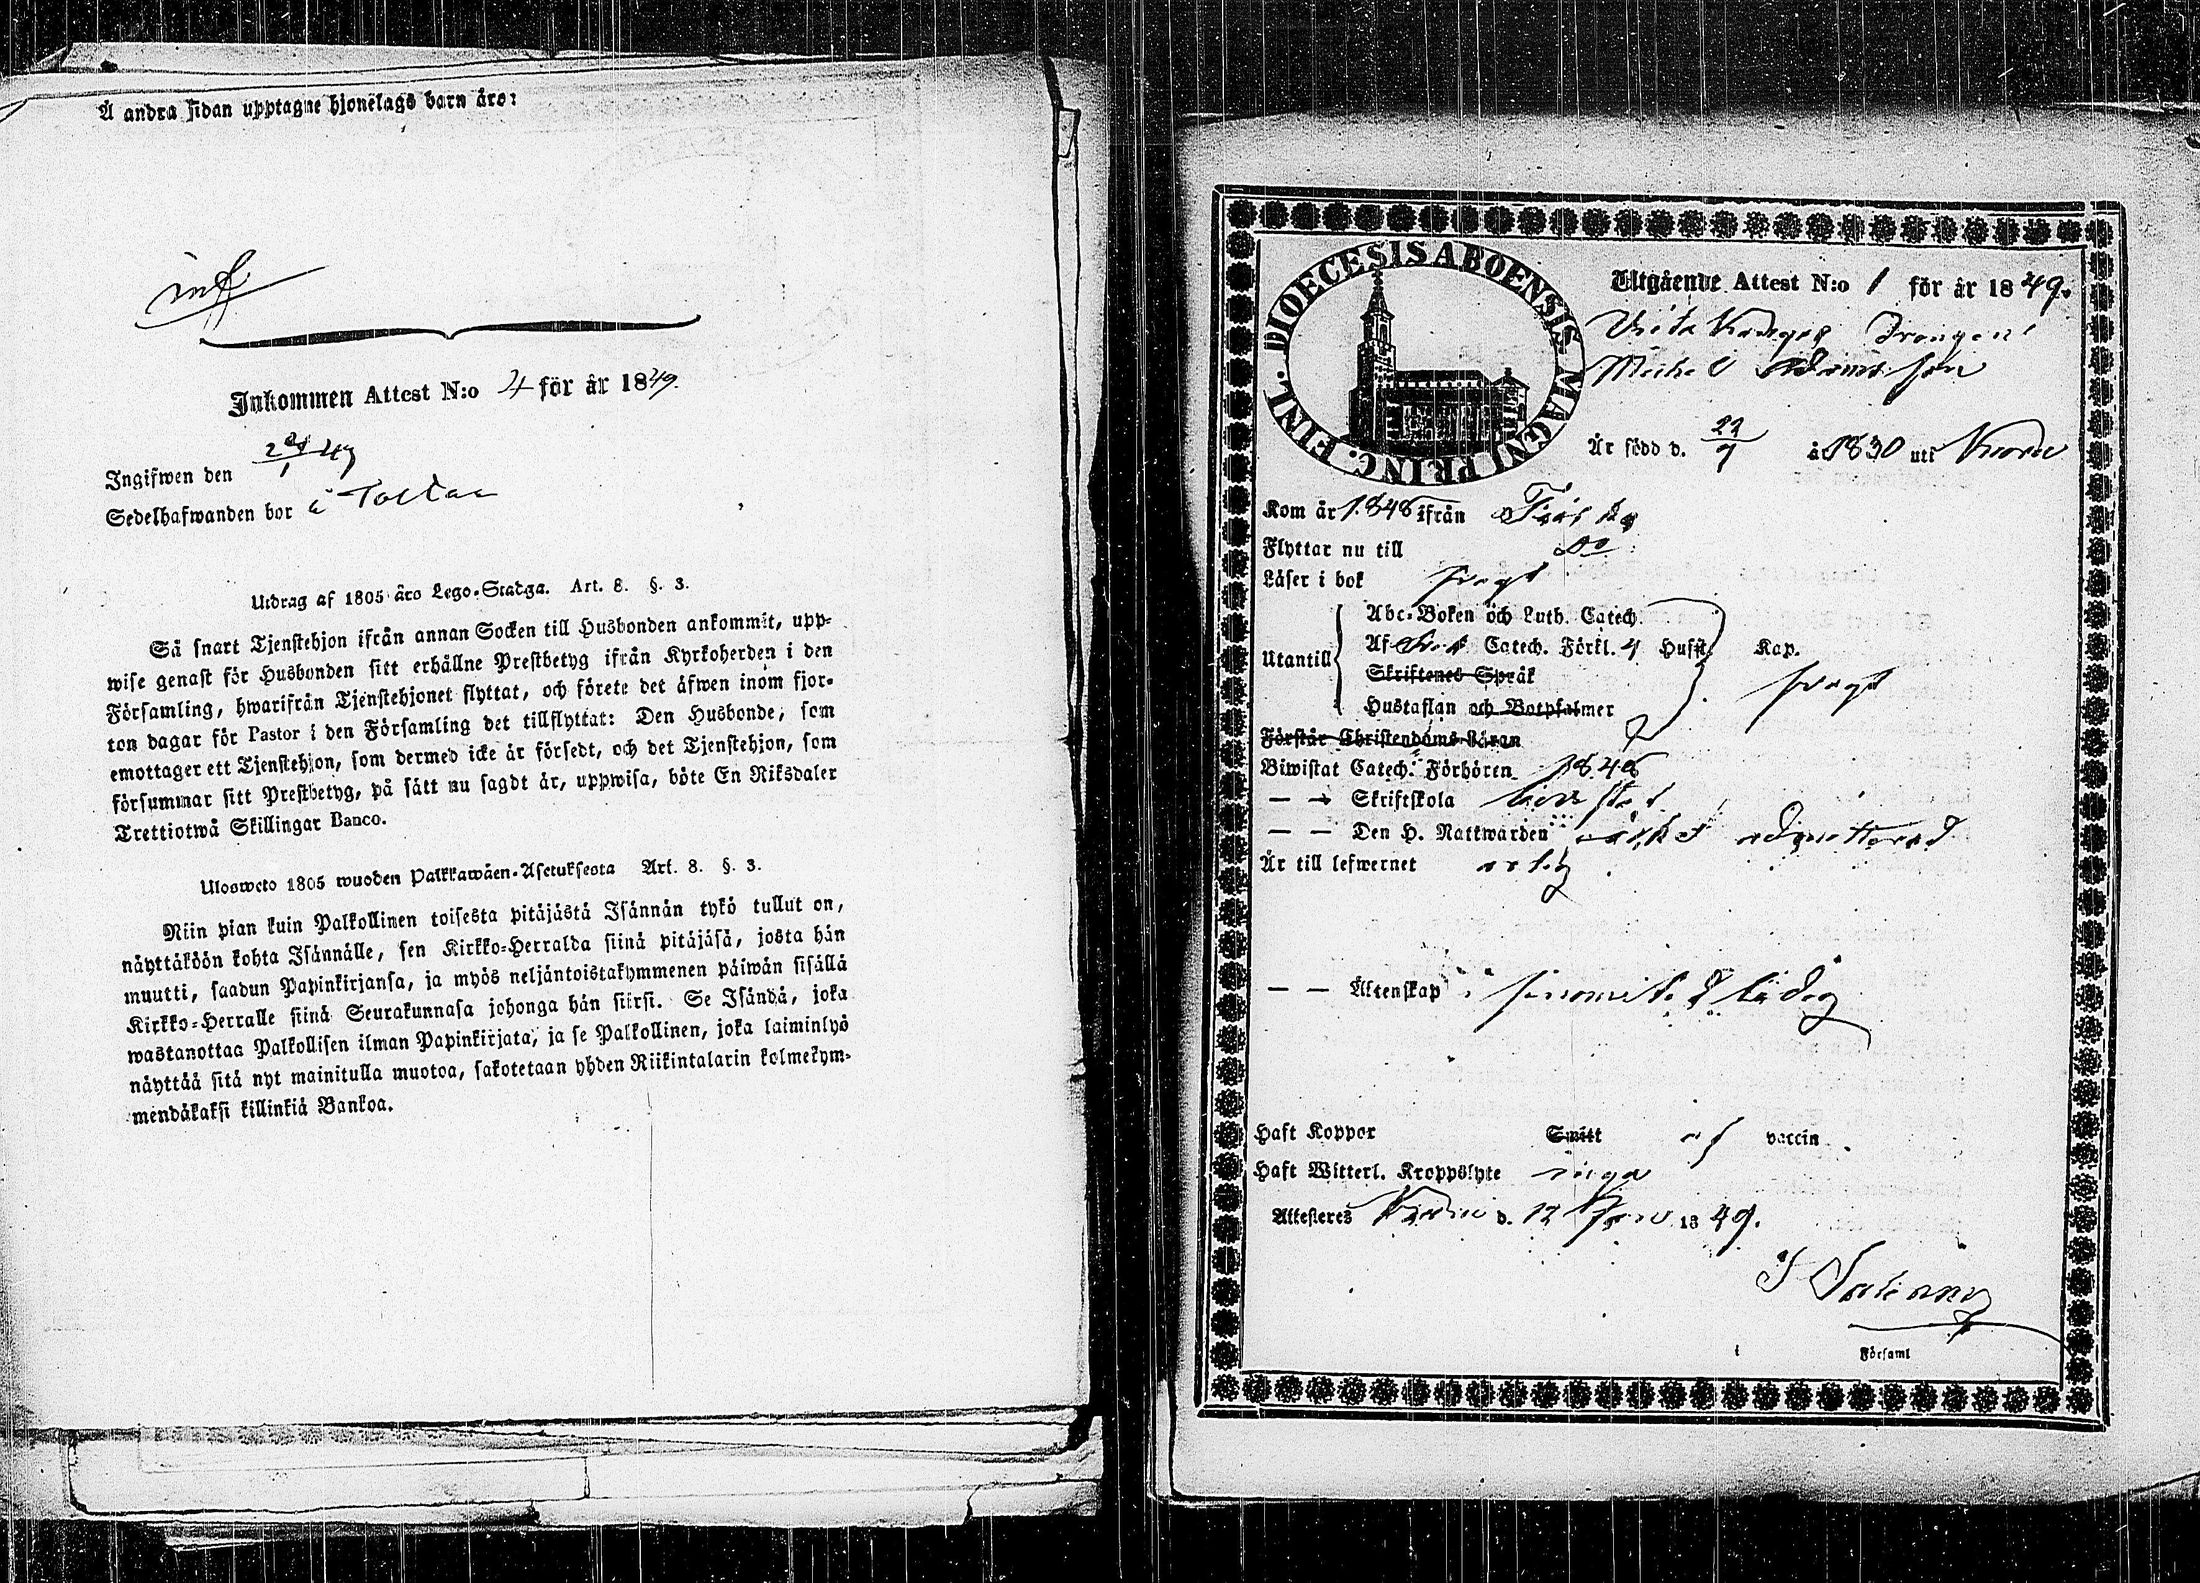 Å andra sidan upptagne hjonelags barn äro:
inf
Inkommen Attest N:o 4 för år 1849.
Ingifwen den
Sedelhafwanden bor i
Utdrag af 1805 års Lego-Stadga. Art. 8. §. 3.
Så snart Tjenstehjon ifrån annan Socken till Husbonden ankommit, upp-
wise genast för Husbonden sitt erhållne Prestbetyg ifrån Kyrkoherden i den
Församling, hwarifrån Tjenstehjonet flyttat, och förete det äfwen inom fjor-
ton dagar för Pastor i den Församling det tillflyttat: Den Husbonde, som
emottager ett Tjenstehjon, som dermed icke är försedt, och det Tjenstehjon, som
försummar sitt Prestbetyg, på sätt nu sagdt är, uppwisa, böte En Riksdaler
Trettiotwå Skillingar Banco.
Ulosweto 1805 wuoden Palkkawäen-Asetuksesta Art. 8. §. 3.
Niin pian kuin Palkollinen toisesta pitäjästä Isännän tykö tullut on,
näyttäköön kohta Isännälle, sen Kirkko-Herralda siinä pitäjäsä, josta hän
muutti, saadun Papinkirjansa, ja myös neljäntoistakymmenen päiwän sisällä
Kirkko-Herralle siinä Seurakunnasa johonga hän siirsi. Se Isändä, joka
wastanottaa Palkollisen ilman Papinkirjata, ja se Palkollinen, joka laiminlyö
näyttää sitä nyt mainitulla muotoa, sakotetaan yhden Riikintalarin kolmekym-
mendäkaksi killinkiä Bankoa.
DIOECESIS ABOENSIS MAGNI PRINC. FINL.
Utgående Attest N:o 1 för år 1849.
Drängen
Michel Adamsson
Är född d. 22/9 å 1830 uti
Kom år 1848 ifrån
Flyttar nu till Do
Läser i bok svagt
Utantill
Abc-Boken och Luth. Catech.
Af Catech. Förkl. 4 Hufst. Kap.
Skriftenes Språk
Hustaflan och Botpsalmer
svagt
Förstår Christendoms Läran
Biwistat Catech. Förhören 1848
— — Skriftskola bevistat
— — Den H. Nattwarden admitterad
Är till lefwernet ärlig
— — Äktenskap ledig
Haft Koppor Smitt af vaccin.
Haft Witterl. Kroppslyte inga
Attesteres d. 12 Janu 1849.
Församl